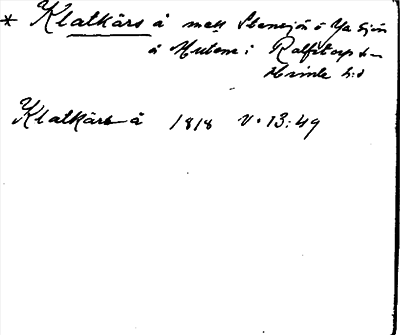 * Klatkärs å mell Stensjön o Ya sjön
å Hulens i Rolfstorp sn
Himle hd
Klatkärs å 1818 V. 13:49